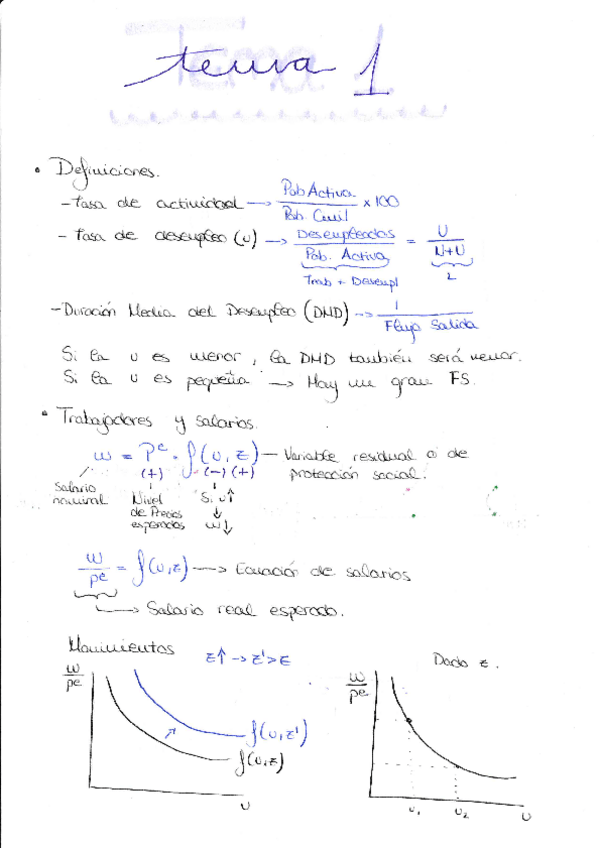 tema 1
• Definiciones.
- tasa de actividad → Pob Activa / Pob. Civil x 100
- tasa de desempleo (u) → Desempleados / Pob. Activa = U / N+U
Trab + Desempl L
- Duración Media del Desempleo (DMD) → 1 / Flujo Salida
Si la u es menor, la DMD también será menor.
Si la u es pequeña → Hay un gran FS.
• Trabajadores y salarios.
w = Pe · f(u, z) — Variable residual o de
(+) (-) (+) protección social.
Salario Nivel Si u↑
nominal de Precios ↓
esperados w↓
w/pe = f(u, z) → Ecuación de salarios
→ Salario real esperado.
Movimientos z↑ → z' > z Dado z.
w/pe w/pe
f(u, z')
f(u, z)
u u1 u2 u